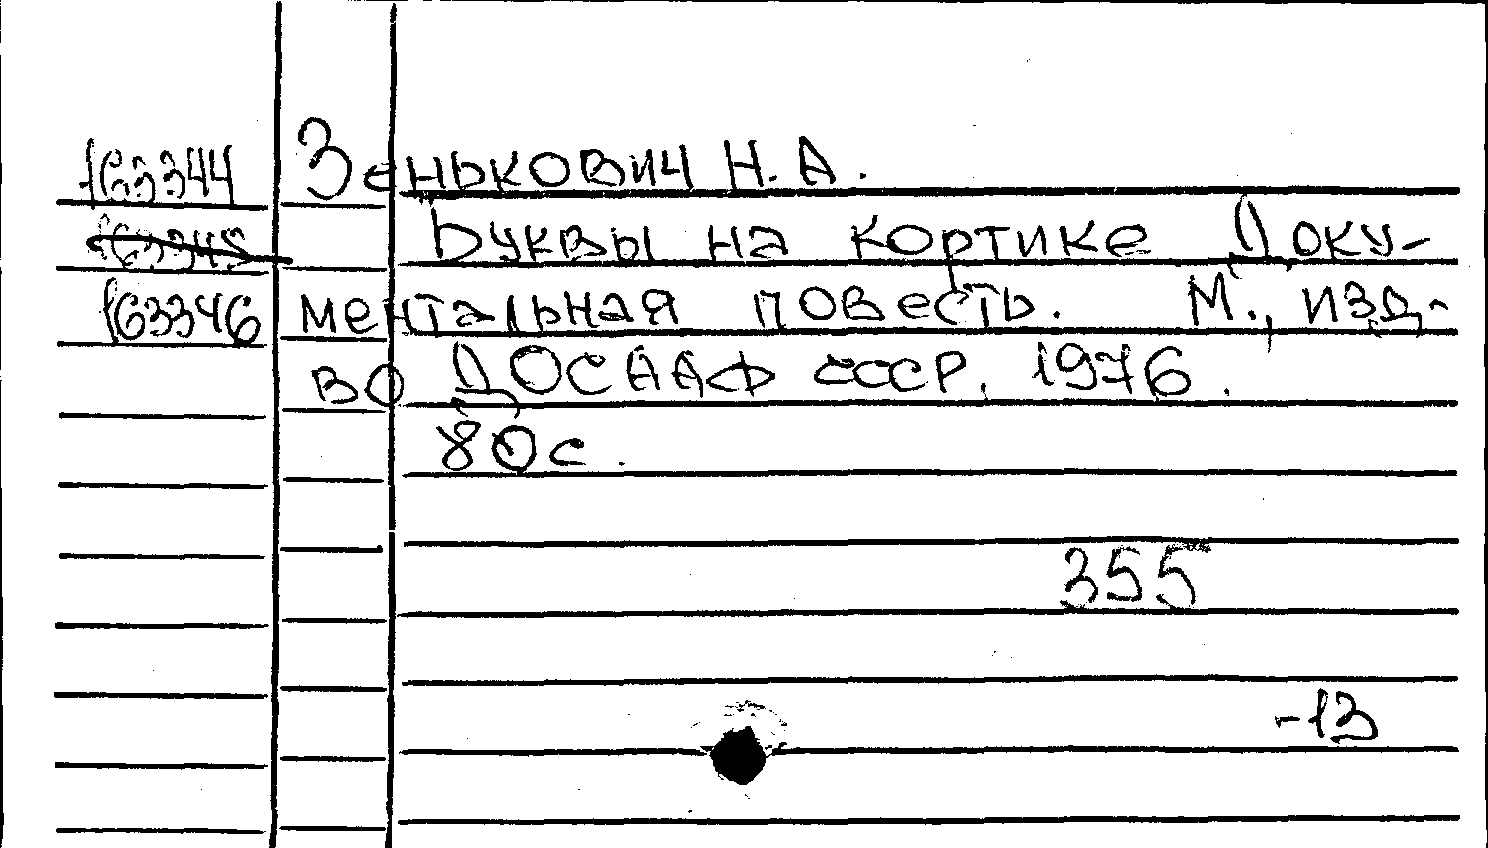 163344 Зенькович Н. А.
163345 Буквы на кортике Доку-
163346 ментальная повесть. М., изд-
во ДОСААФ СССР, 1976.
80 с.
355
-13